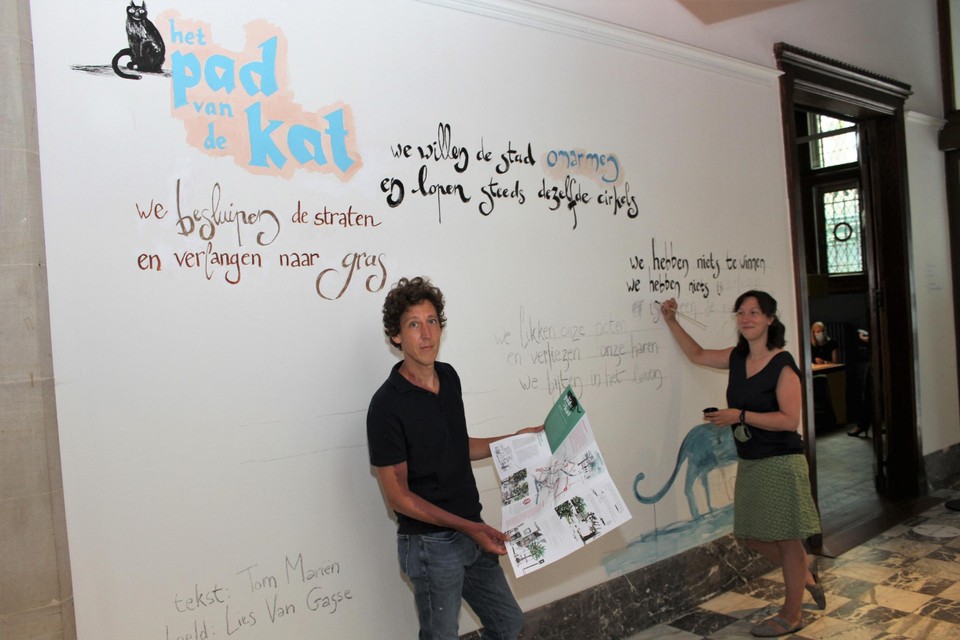 het
pad
van
de
kat
we willen de stad omarmen
en lopen steeds dezelfde cirkels
we besluipen de straten
en verlangen naar gras
we hebben niets te winnen
we hebben niets
we likken onze poten
en verliezen onze haren
we bijten in het
tekst: Tom Marien
beeld: Lies Van Gasse